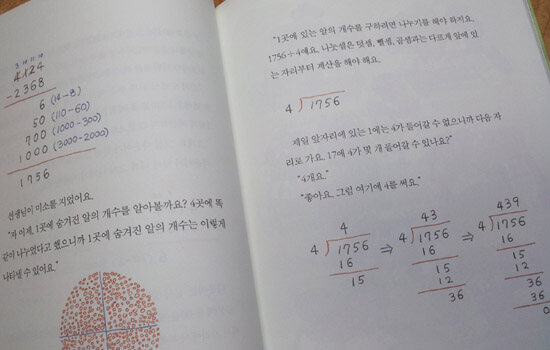 3 10 11 14
4124
-2368
6 (14-8)
50 (110-60)
700 (1000-300)
1000 (3000-2000)
1756
선생님이 미소를 지었어요.
"자 이제, 1곳에 숨겨진 알의 개수를 알아볼까요? 4곳에 똑
같이 나누었다고 했으니까 1곳에 숨겨진 알의 개수는 이렇게
나타낼 수 있어요."
"1곳에 있는 알의 개수를 구하려면 나누기를 해야 하지요.
1756÷4예요. 나눗셈은 덧셈, 뺄셈, 곱셈과는 다르게 앞에 있
는 자리부터 계산을 해야 해요.
4 ) 1756
제일 앞자리에 있는 1에는 4가 들어갈 수 없으니까 다음 자
리로 가요. 17에 4가 몇 개 들어갈 수 있나요?"
"4개요."
"좋아요. 그럼 여기에 4를 써요."
4
4 ) 1756
16
15
⇒
43
4 ) 1756
16
15
12
36
⇒
439
4 ) 1756
16
15
12
36
36
0